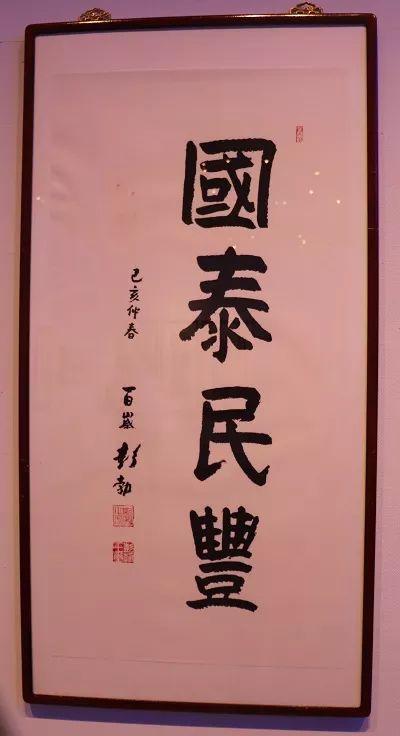 國泰民豐
己亥仲春
百嵗彭勃